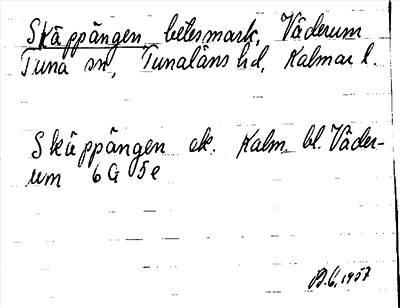 Skäppängen, betesmark, Väderum
Tuna sn, Tunaläns hd, Kalmar l.
Skäppängen ek. Kalm. bl. Väder-
um 6G 5e
1957